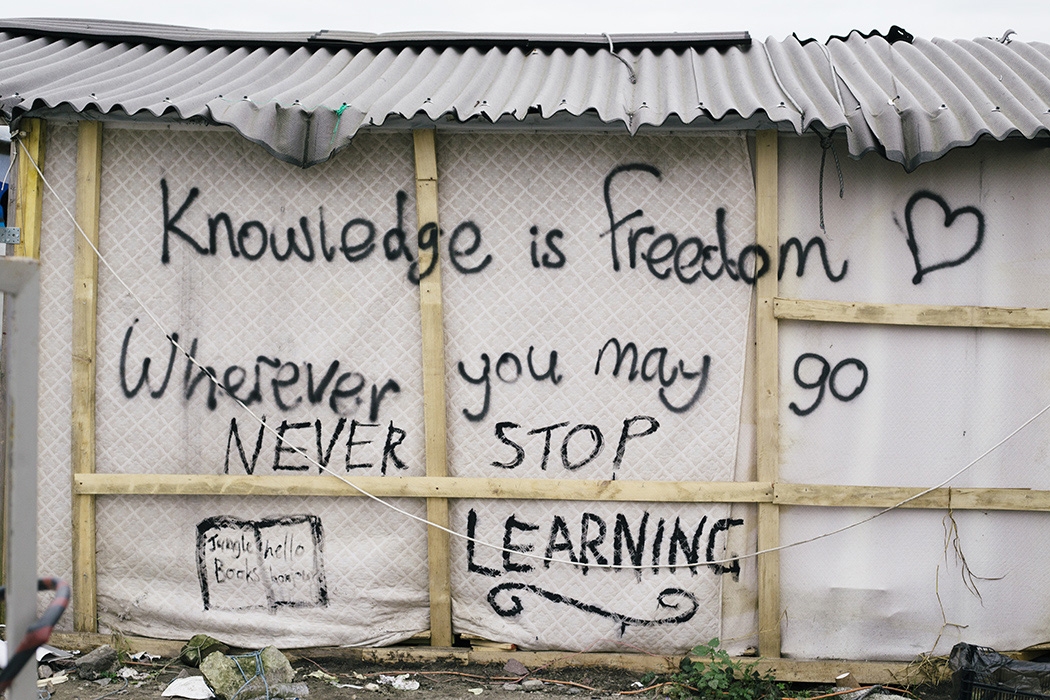 Knowledge is freedom
Wherever you may go
NEVER STOP
LEARNING
Jungle hello
Books